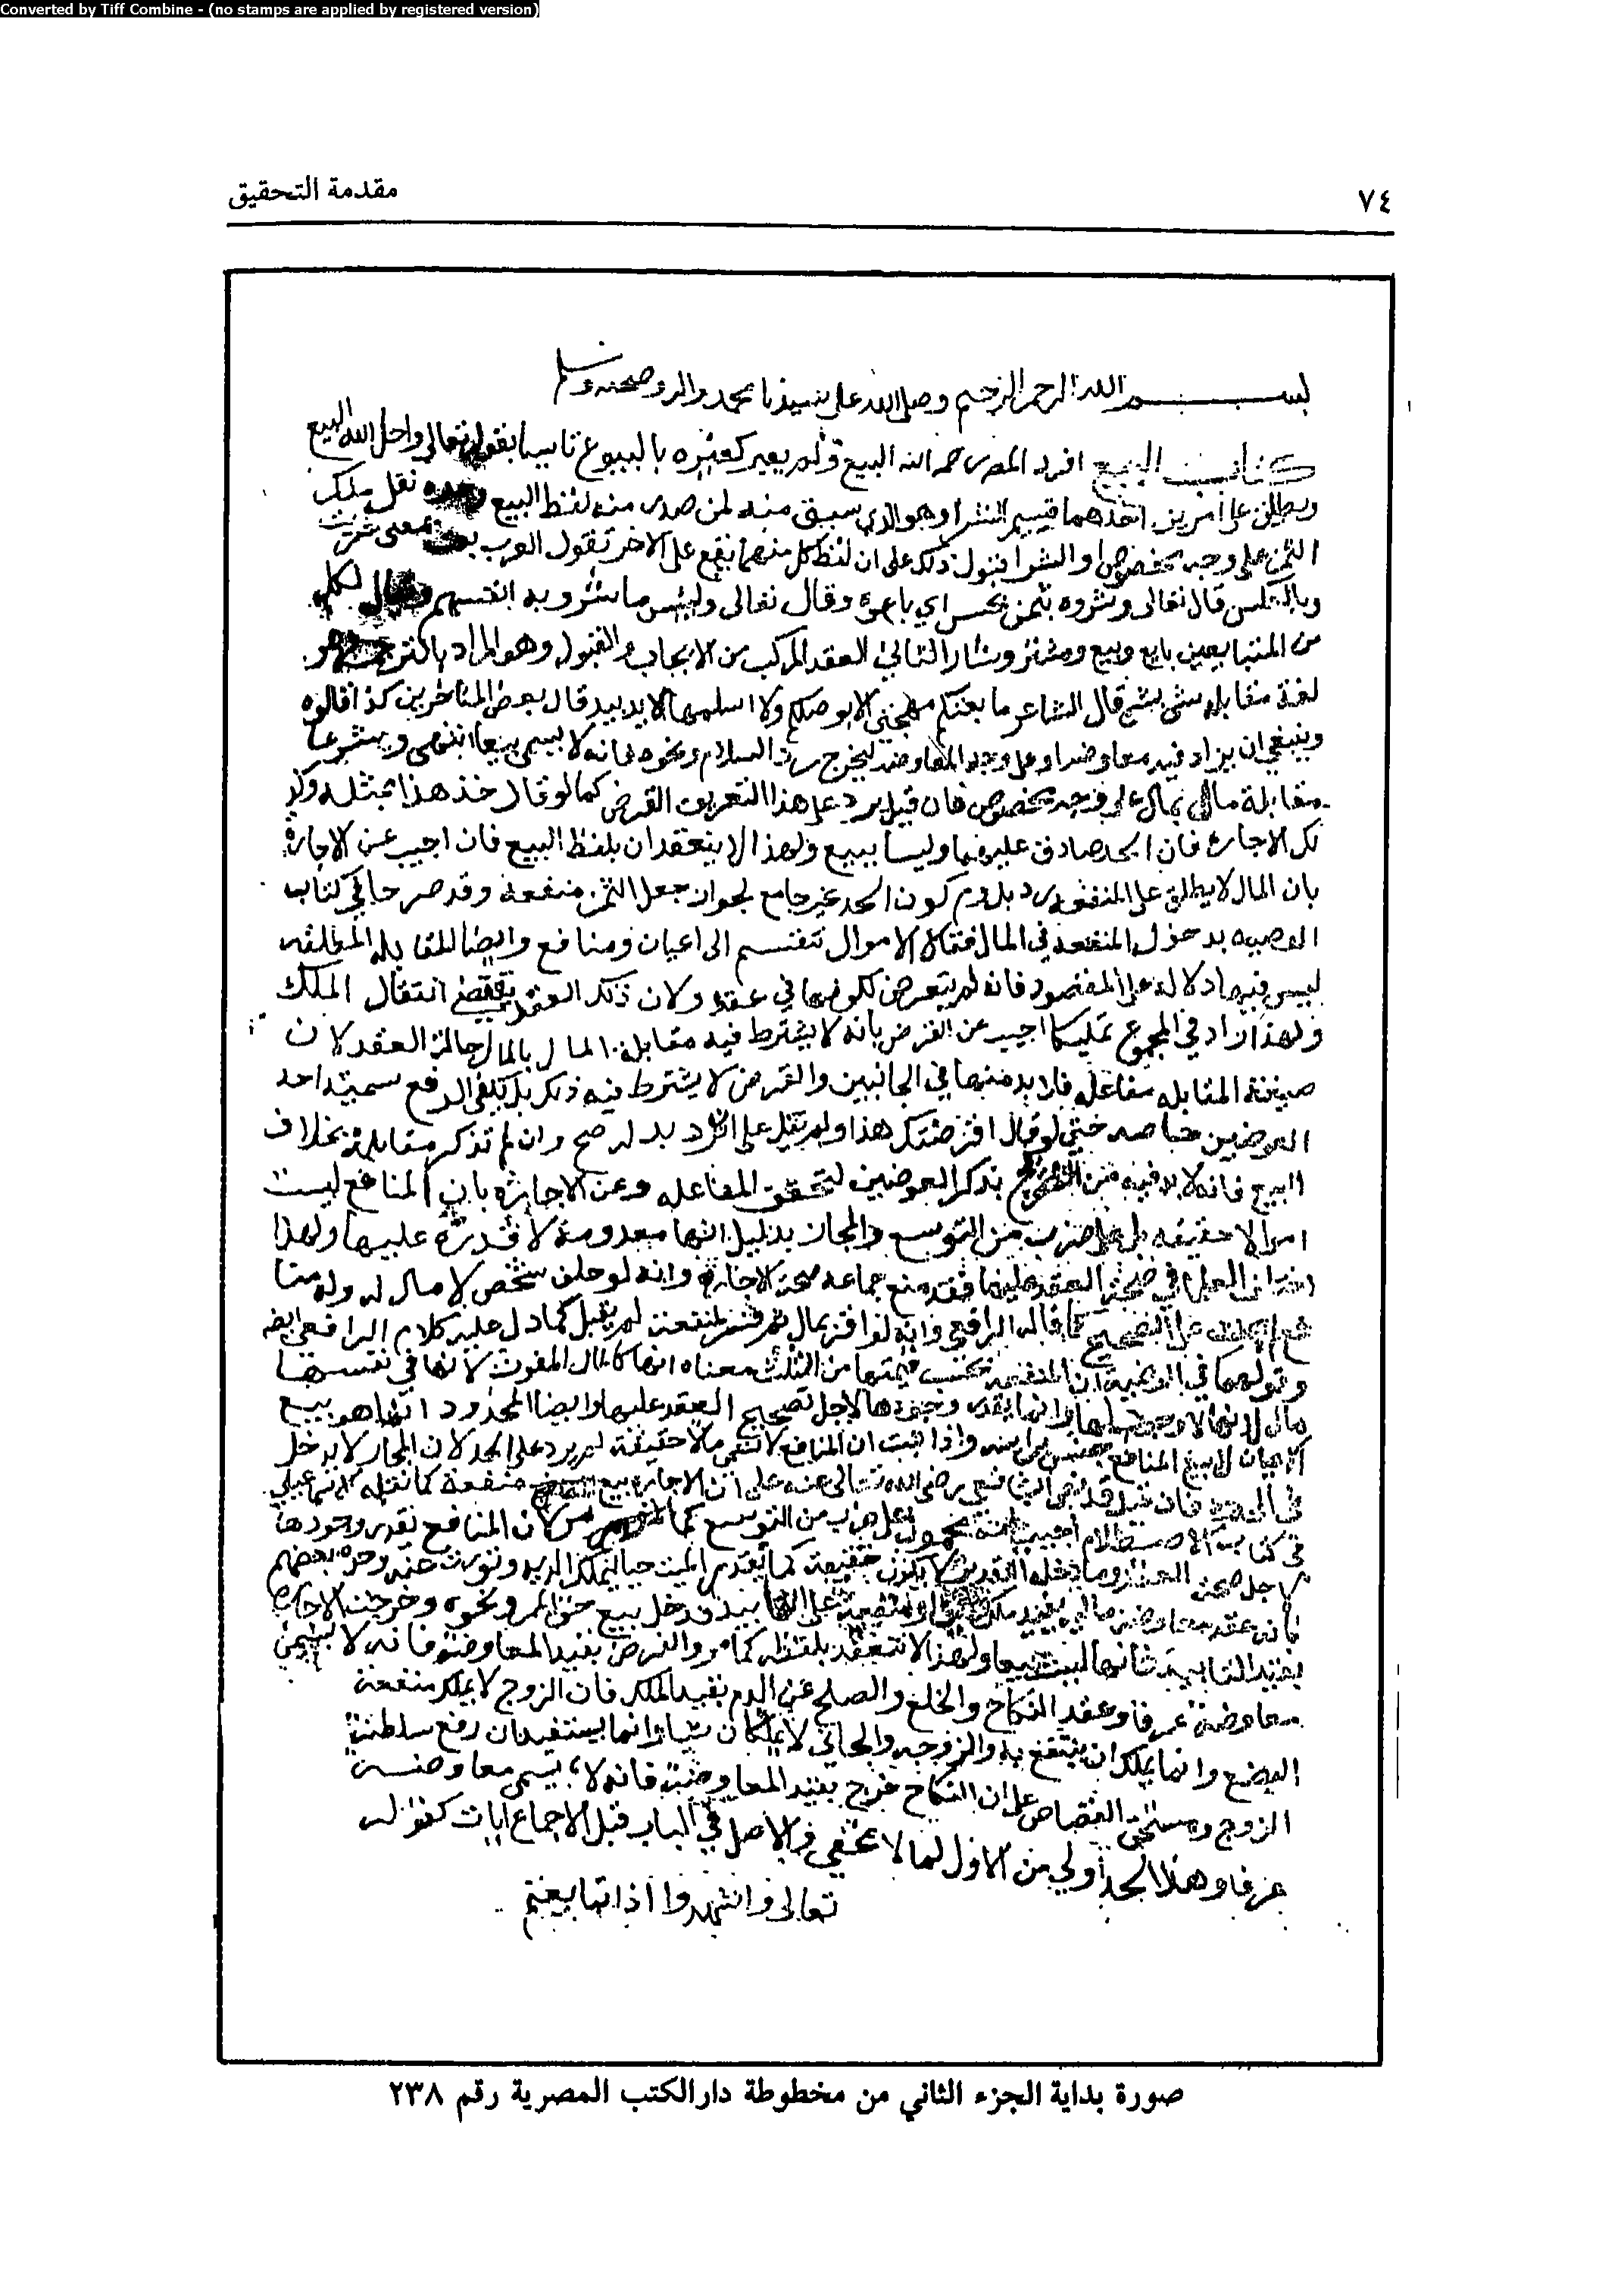 Converted by Tiff Combine - (no stamps are applied by registered version)
٧٤
مقدمة التحقيق
بسم الله الرحمن الرحيم وصلى الله على سيدنا محمد واله وصحبه وسلم
كتاب البيع افرد المص رحمه الله البيع ولم يعبر كغيره بالبيوع تاسيا بقوله تعالى واحل الله البيع
ويطلق على امرين احدهما قسيم الشرا وهو الذي سبق منه لمن صدر منه لفظ البيع وحده نقل ملك
الثمن على وجه مخصوص والشرا قبول ذلك على ان لفظ كل منهما يقع على الاخر تقول العرب بعت بمعنى شريت
وبالعكس قال تعالى وشروه بثمن بخس اي باعوه وقال تعالى ولبئس ما شروا به انفسهم ويقال لكل
من المتبايعين بايع وبيع ومشتر وشار الثاني العقد المركب من الايجاب والقبول وهو المراد بالترجمة وهو
لغة مقابلة شي بشي قال الشاعر ما بعتكم مهجتي الا بوصلكم ولا اسلمها الا يدا بيد قال بعض المتاخرين كذا قالوه
وينبغي ان يزاد فيه معاوضه او على وجه المعاوضة ليخرج رد السلام ونحوه فانه لا يسمى بيعا انتهى وشرعا
مقابلة مال بمال على وجه مخصوص فان قيل يرد على هذا التعريف القرض كما لو قال خذ هذا بمثله وكذ
لك الاجاره فان الحد صادق عليهما وليسا ببيع ولهذا لا ينعقدان بلفظ البيع فان اجيب عن الاجارة
بان المال لا يطلق على المنفعه رد بلزوم كون الحد غير جامع لجواز جعل الثمن منفعة وقد صرحا في كتاب
الوصيه بدخول المنفعة في المال فقالا الاموال تنقسم الى اعيان ومنافع وايضا المقابله المطلقه
ليس فيها دلالة على المقصود فانه لم يتعرض لكونها في عقد ولان ذلك العقد يقتضي انتقال الملك
ولهذا زاد في المجموع تمليكا اجيب عن القرض بانه لا يشترط فيه مقابلة المال بالمال حالة العقد لان
صيغة المقابله مفاعله فلا بد منها في الجانبين والقرض لا يشترط فيه ذلك بل يكفي الدفع تسمية احد
العوضين خاصه حتى لو قال اقرضتك هذا ولم يقل على ان ترد بدله صح وان لم تذكر مقابلة بخلاف
البيع فانه لا بد فيه من التصريح بذكر العوضين لتحقق المفاعله وعن الاجارة بان المنافع ليست
اموالا حقيقه بل على ضرب من التوسع والمجاز بدليل انها معدومة لا قدرة عليها ولهذا
اختلف العلما في صحة العقد عليها فقد منع جماعه صحة الاجارة وانه لو حلف شخص لا مال له وله منا
فع لم يحنث على الصحيح كما قاله الرافعي وانه لو اقر بمال ثم فسره بمنفعة لم يقبل كما دل عليه كلام الرافعي ايضا
وقولهما في الوصية ان المنفعه تحسب قيمتها من الثلث معناه انها كالمال المفوت لا نها في نفسها
مال لانها لا وجود لها وانما يقدر وجودها لاجل تصحيح العقد عليها وايضا المحدود انما هو بيع
الاعيان لا بيع المنافع واذا ثبت ان المنافع لا تسمى مالا حقيقة لم يرد على الحد لان المجاز لا يدخل
في الحدود فان قيل قد نص الشافعي رضي الله تعالى عنه على ان الاجاره بيع منفعة كما نقله الاسماعيلي
في كتاب الاصطلام اجيب بانه محمول على ضرب من التوسع كما مر لان المنافع يقدر وجودها
لاجل صحة العقد وما دخله التقدير لا يكون حقيقة كما يقدر الميت حيا ليملك الديه وتورث عنه وحده بعضهم
بانه عقد معاوضة مالية يفيد ملك عين او منفعة على التابيد فدخل بيع حق الممر ونحوه وخرجت الاجارة
بقيد التابيد فانها ليست بيعا ولهذا لا تنعقد بلفظه كما مر والقرض بقيد المعاوضة فانه لا يسمى
معاوضة عرفا وعقد النكاح والخلع والصلح عن الدم بقيد الملك فان الزوج لا يملك منفعة
البضع وانما يملك ان ينتفع به والزوجه والجاني لا يملكان شيا وانما يستفيدان رفع سلطنة
الزوج ومستحق القصاص على ان النكاح خرج بقيد المعاوضة فانه لا يسمى معاوضة
عرفا وهذا الحد اولى من الاول لما لا يخفى والاصل في الباب قبل الاجماع ايات كقوله
تعالى واشهدوا اذا تبايعتم
صورة بداية الجزء الثاني من مخطوطة دار الكتب المصرية رقم ٢٣٨